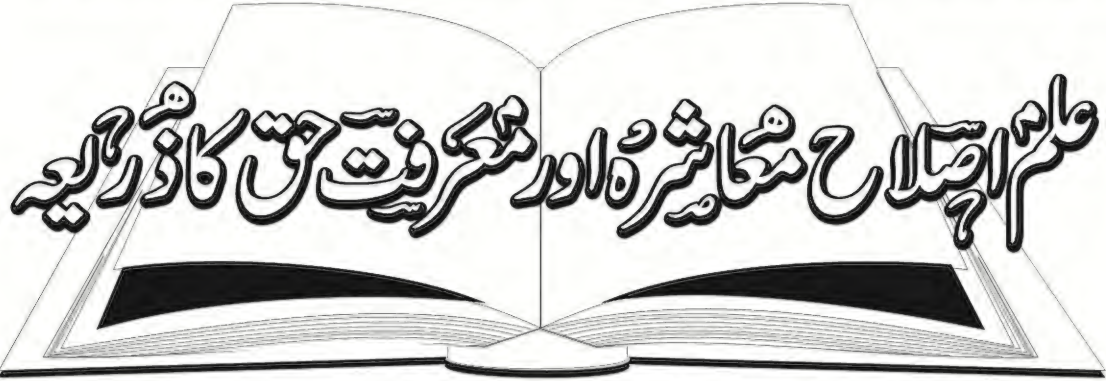 علم اصلاح معاشرہ اور معرفت حق کا ذریعہ